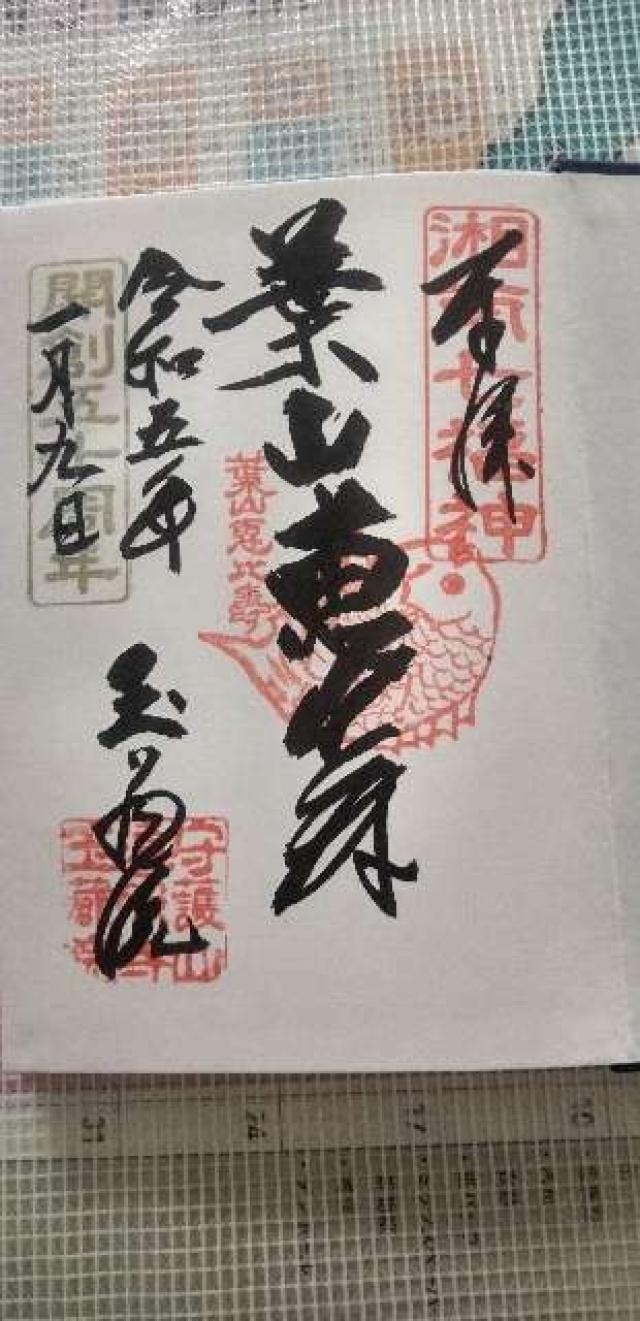 奉拝
湘南七福神
葉山恵比寿
葉山恵比寿
令和五年
一月九日
開創五十周年
玉蔵院
守護山
玉蔵院